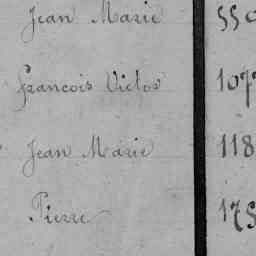 Jean Marie 550
François Victor 107
Jean Marie 118
Pierre 175